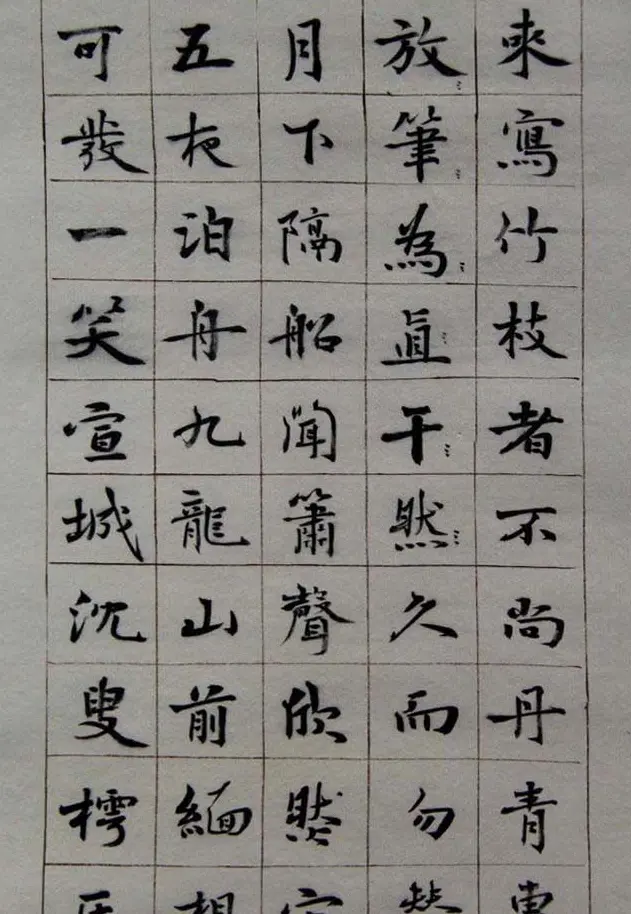 來寫竹枝者不尚丹青
放筆為直干然久而勿
月下隔船聞簫聲欣然
五夜泊舟九龍山前緬想
可發一笑宣城沈叟樗